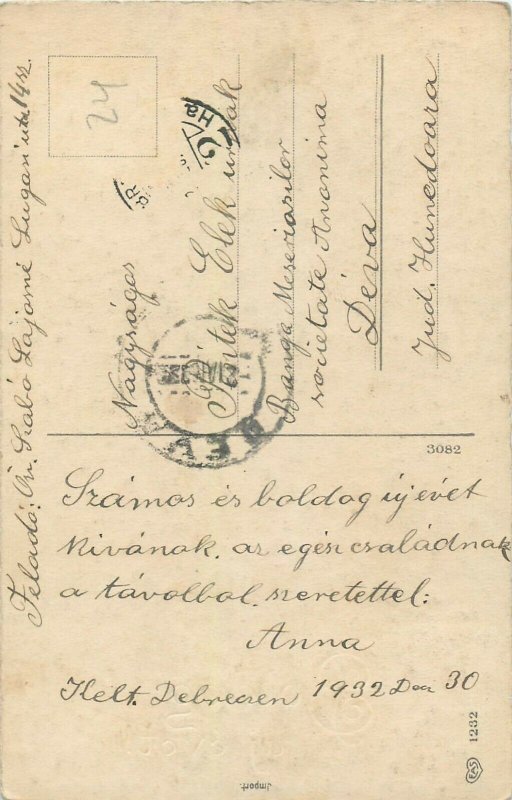 Feladó: Özv. Szabó Lajosné Lugosi utca 14 sz.
24
Nagyságos
Péntek Elek úrnak
Banga Meseriasilor
societate Anonima
Déva
Jud. Hunedoara
DEVA
3082
Számos és boldog új évet
kivánok. az egész családnak
a távolbol. szeretettel:
Anna
Kelt. Debrecen 1932 Dec 30
EAS
1232
Import.